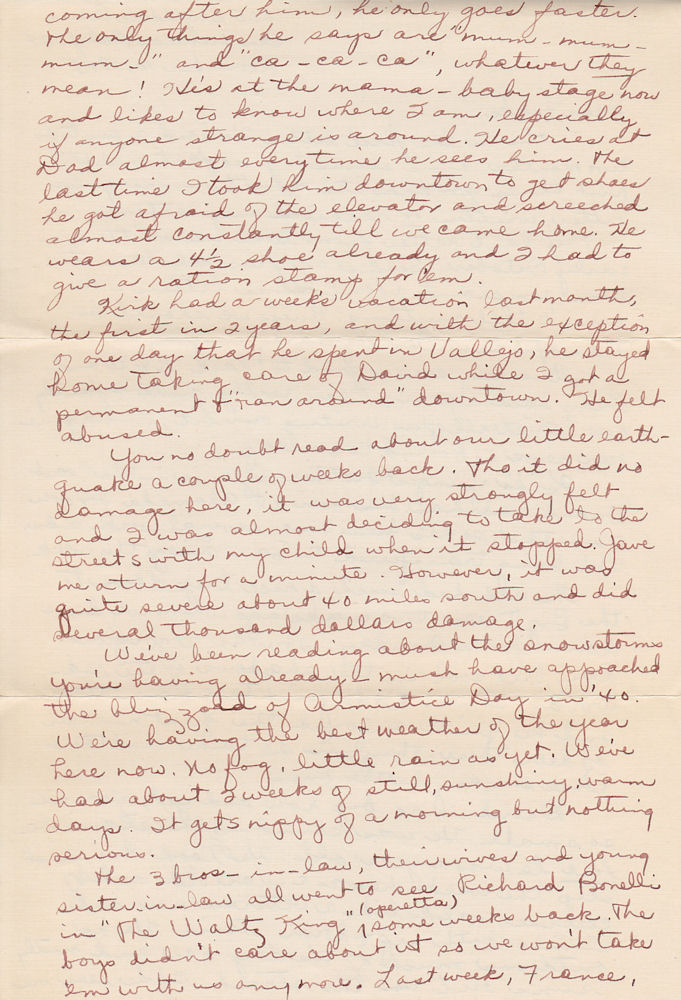 coming after him, he only goes faster.
The only things he says are "mum-mum-
mum-" and "ca-ca-ca", whatever they
mean! He's at the mama-baby stage now
and likes to know where I am, especially
if anyone strange is around. He cries at
Dad almost everytime he sees him. The
last time I took him downtown to get shoes
he got afraid of the elevator and screeched
almost constantly till we came home. He
wears a 4½ shoe already and I had to
give a ration stamp for 'em.
Kirk had a week's vacation last month,
the first in 2 years, and with the exception
of one day that he spent in Vallejo, he stayed
home taking care of David while I got a
permanent & "ran around" downtown. He felt
abused.
You no doubt read about our little earth-
quake a couple of weeks back. Tho it did no
damage here, it was very strongly felt
and I was almost deciding to take to the
streets with my child when it stopped. Gave
me a turn for a minute. However, it was
quite severe about 40 miles south and did
several thousand dollars damage.
We've been reading about the snowstorms
you're having already - must have approached
the blizzard of Armistice Day in '40.
We're having the best weather of the year
here now. No fog, little rain as yet. We've
had about 3 weeks of still, sunshiny, warm
days. It gets nippy of a morning but nothing
serious.
The 3 bros-in-law, their wives and young
sister-in-law all went to see Richard Bonelli
in "The Waltz King" (operetta) some weeks back. The
boys didn't care about it so we won't take
'em with us any more. Last week, France,